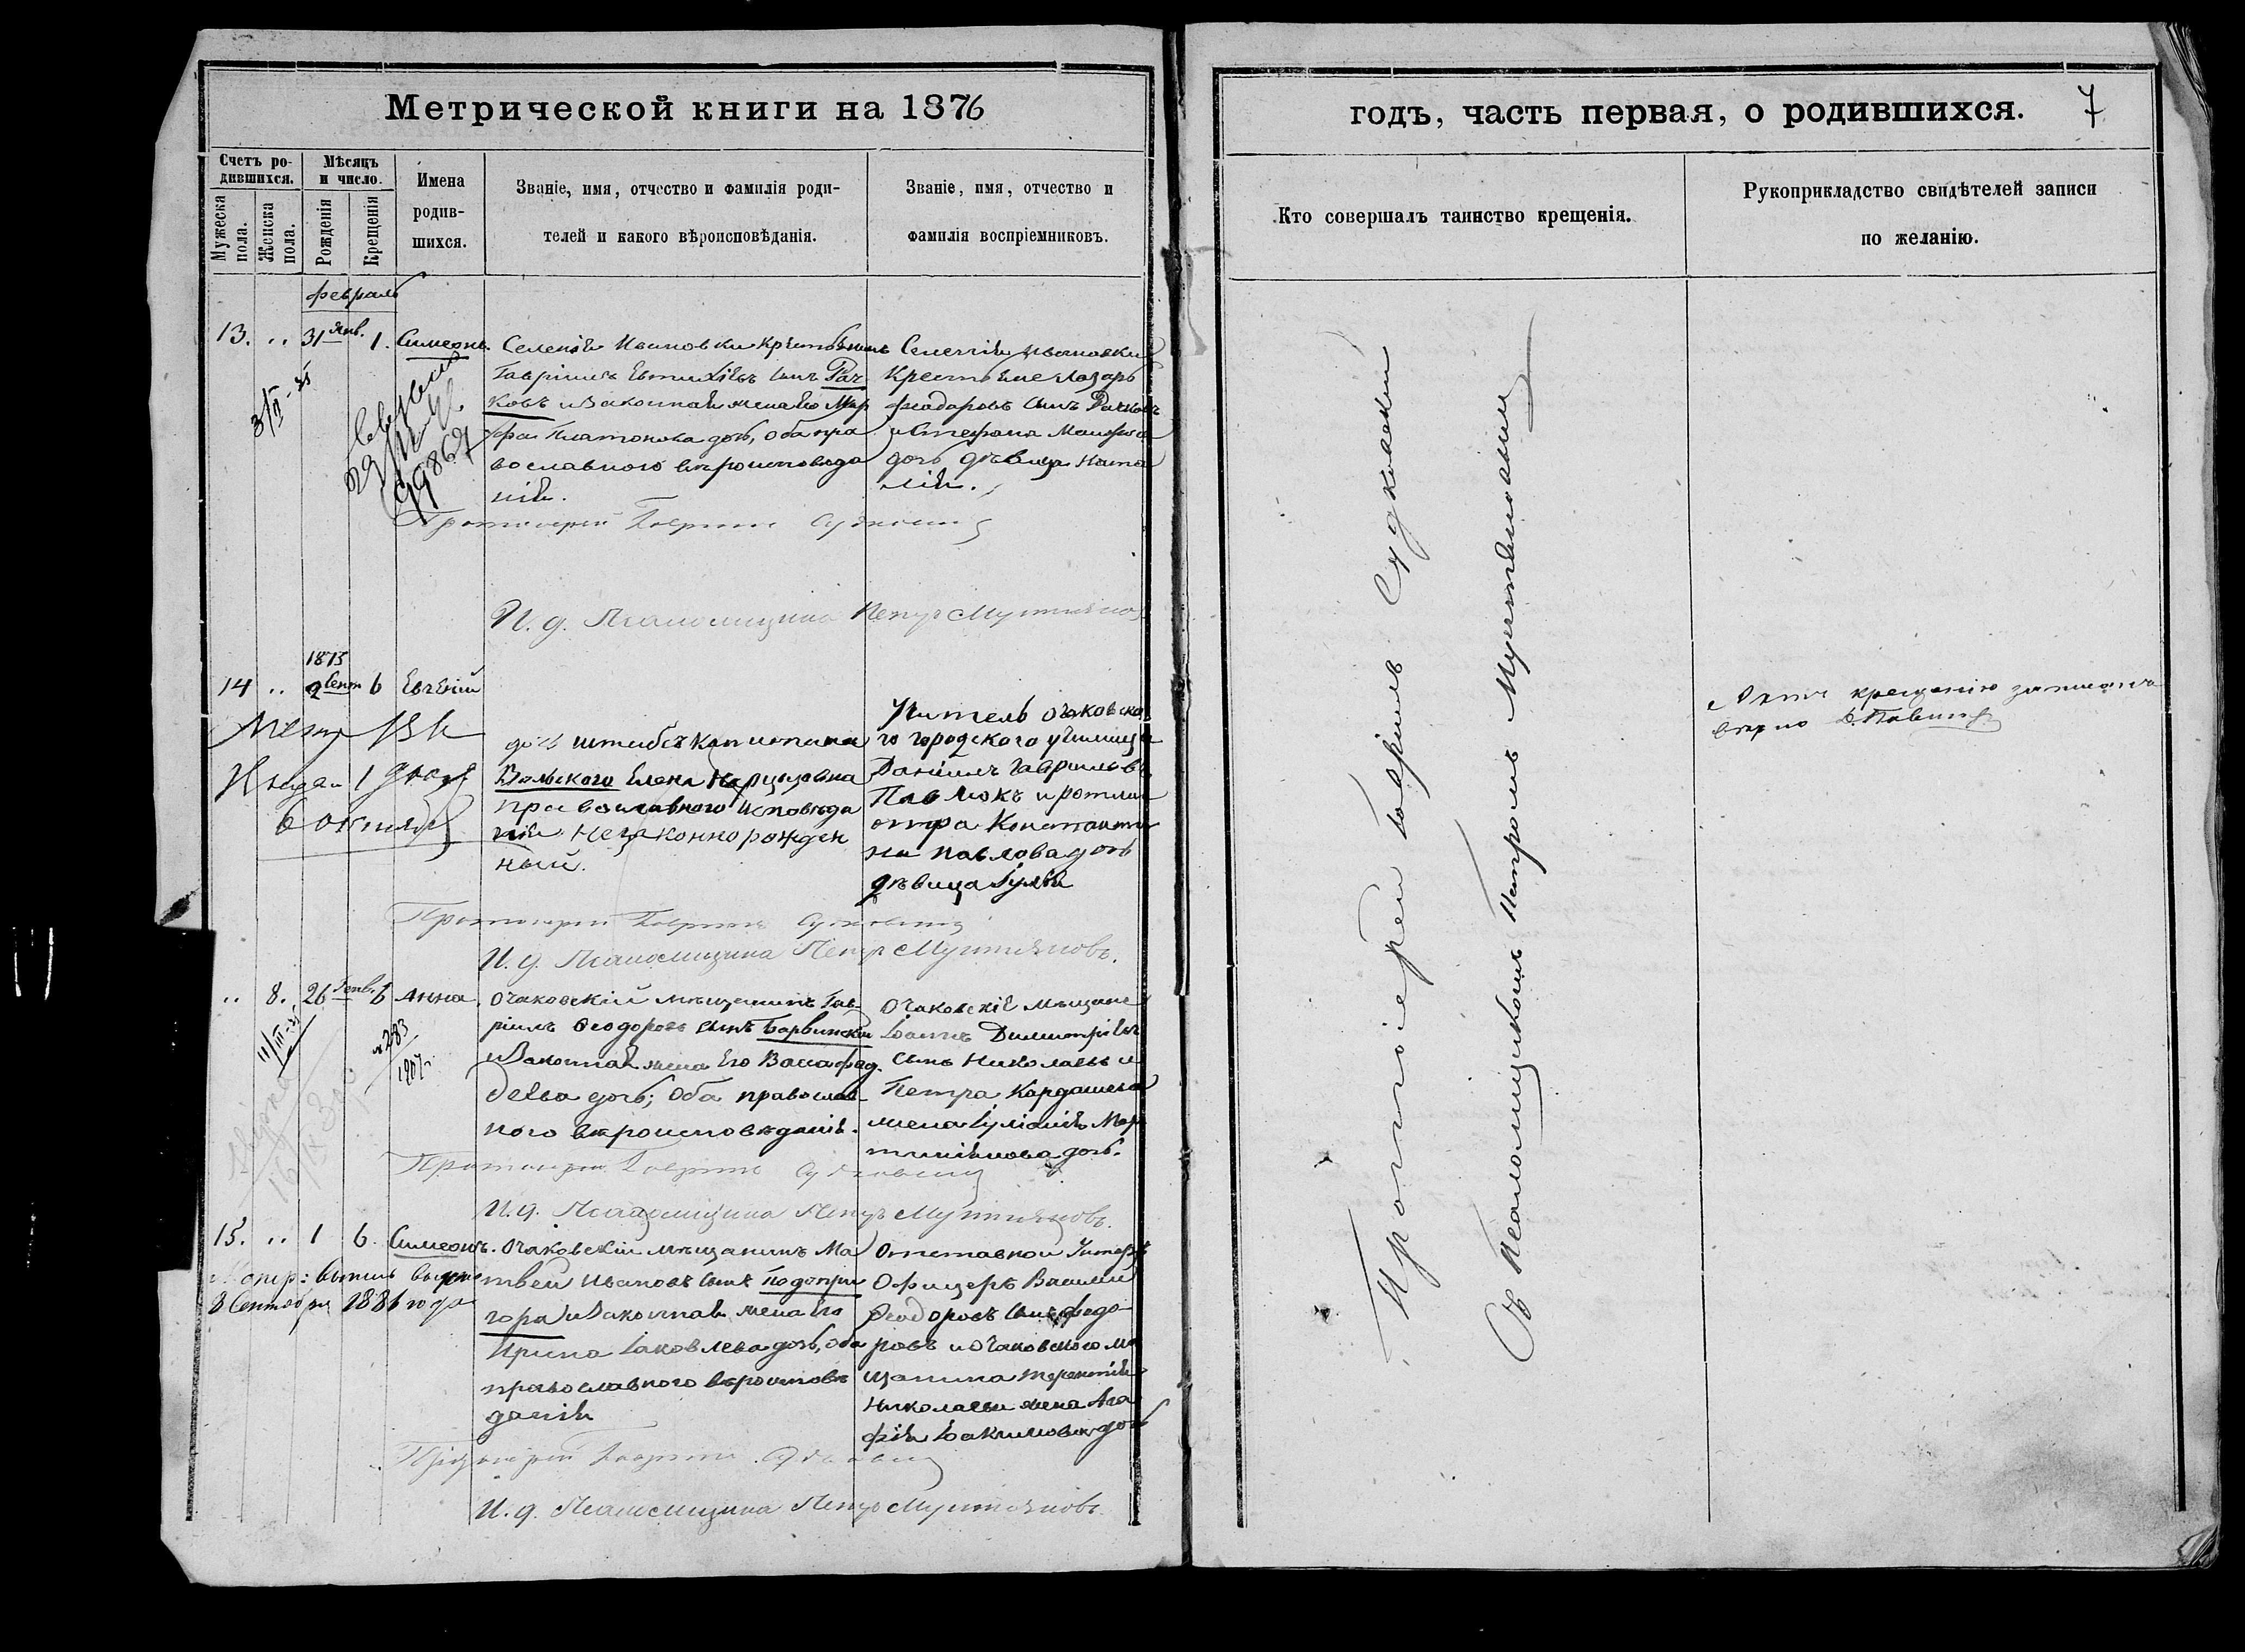 Метрической книги на 1876
Счетъ ро-
дившихся.
Мѣсяцъ
и число.
Мужеска
пола.
Женска
пола.
Рожденія
Крещенія
Имена
родив-
шихся.
Званіе, имя, отчество и фамилія роди-
телей и какого вѣроисповѣданія.
Званіе, имя, отчество и
фамилія воспріемниковъ.
февраль
13. .. 31 Янв. 1. Симеонъ.
Селенія Ивановки крестьянинъ
Гавріилъ Евтихіевъ сынъ Рач
ковъ и законная жена его Мар
фа Платонова дочь, оба пра
вославного вѣроисповѣда
нія.
Селенія Ивановки
Крестьяне Лазарь
Феодоровъ сынъ Рачковъ
и Стефана
дочь дѣвица Ната
лія.
99867
Протоіерей Гавріилъ Судковскій
И. д. Псаломщика Петръ Мультяновъ
14 .. 1875 9 Сент 6 Евгеній
дочь штабсъ капитана
Вольского Елена
православного исповѣда
нія незаконнорожден
ный.
Учитель очаковска
го городского училища
Даніилъ Гавриловъ
Павлюкъ и ротми
стра Константи
на Павлова дочь
дѣвица Іулія
6 октября
Протоіерей Гавріилъ Судковскій
И. д. Псаломщика Петръ Мультяновъ.
.. 8. 26 Генв. 6 Анна.
Очаковскій мѣщанинъ Гав-
ріилъ Феодоровъ сынъ Барвинскій
и законная жена его Васса Фад
деева дочь; оба православ-
ного вѣроисповѣданія.
Очаковскіе мѣщане
Іоаннъ Димитріевъ
сынъ Николаевъ и
Петра Кардашева
жена Іуліанія Мар
тиніанова дочь.
№ 283
1907
Протоіерей Гавріилъ Судковскій
И. д. Псаломщика Петръ Мультяновъ.
15. .. 1 6. Симеонъ.
Очаковскій мѣщанинъ Ма
твей Ивановъ сынъ Подопри
гора и законная жена его
Ирина Іаковлева дочь, оба
православного вѣроисповѣ
данія
Отставной Унтеръ
Офицеръ Василій
Феодоровъ сынъ Федо-
ровъ и Очаковского мѣ
щанина Терентія
Николаева жена Ага
фія Іоакимова дочь
8 Сентября 1886 года
Протоіерей Гавріилъ Судковскій
И. д. Псаломщика Петръ Мультяновъ.
годъ, часть первая, о родившихся. 7
Кто совершалъ таинство крещенія.
Рукоприкладство свидѣтелей записи
по желанію.
Протоіерей Гавріилъ Судковскій
Съ Псаломщикомъ Петромъ Мультяновымъ
Актъ крещенія записанъ
вѣрно